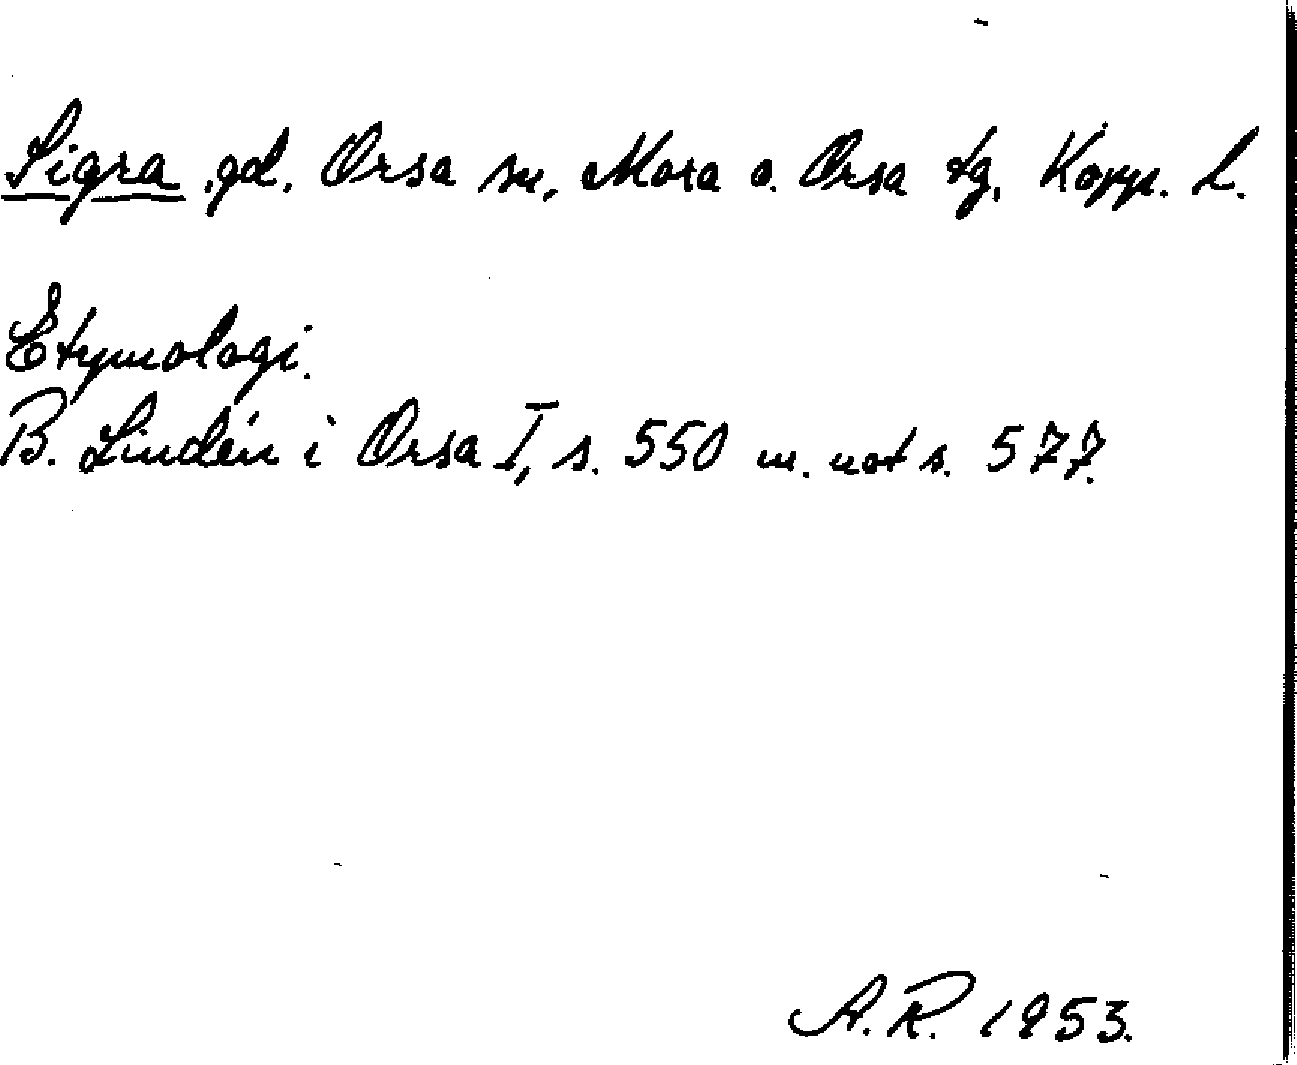 Sigra, gd. Orsa sn, Mora o. Orsa tg, Kopp. L.
Etymologi.
B. Lindén i Orsa I, s. 550 m. not s. 577.
A.R. 1953.